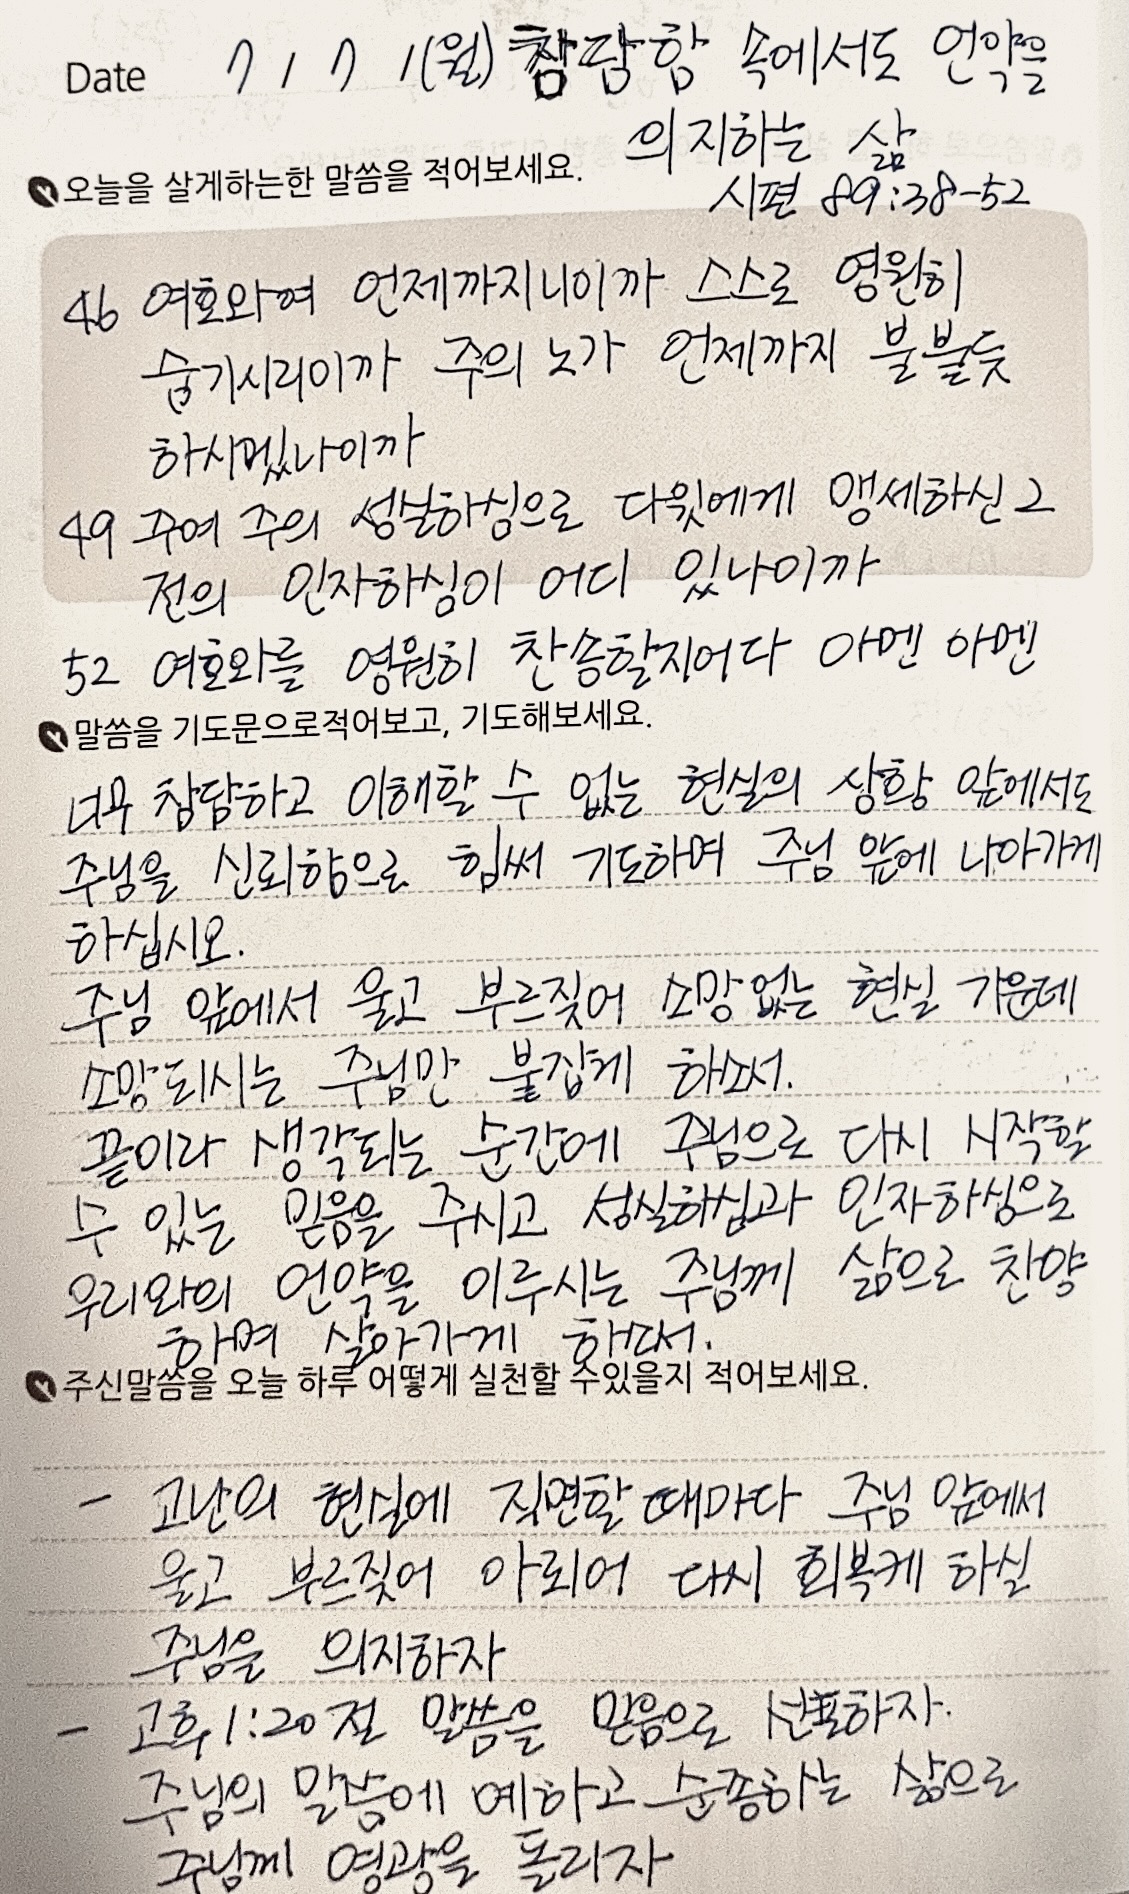 Date 7 / 7 / (월) 참담함 속에서도 언약을
의지하는 삶
오늘을 살게하는한 말씀을 적어보세요.
시편 89:38-52
46 여호와여 언제까지니이까 스스로 영원히
숨기시리이까 주의 노가 언제까지 불붙듯
하시겠나이까
49 주여 주의 성실하심으로 다윗에게 맹세하신 그
전의 인자하심이 어디 있나이까
52 여호와를 영원히 찬송할지어다 아멘 아멘
말씀을 기도문으로적어보고, 기도해보세요.
너무 참담하고 이해할 수 없는 현실의 상황 앞에서도
주님을 신뢰함으로 힘써 기도하며 주님 앞에 나아가게
하십시오.
주님 앞에서 울고 부르짖어 소망없는 현실 가운데
소망되시는 주님만 붙잡게 하소서.
끝이라 생각되는 순간에 주님으로 다시 시작할
수 있는 믿음을 주시고 성실하심과 인자하심으로
우리와의 언약을 이루시는 주님께 삶으로 찬양
하며 살아가게 하소서.
주신말씀을 오늘 하루 어떻게 실천할 수있을지 적어보세요.
- 고난의 현실에 직면할 때마다 주님 앞에서
울고 부르짖어 아뢰어 다시 회복케 하실
주님을 의지하자
- 고후 1:20절 말씀을 믿음으로 선포하자.
주님의 말씀에 예하고 순종하는 삶으로
주님께 영광을 돌리자